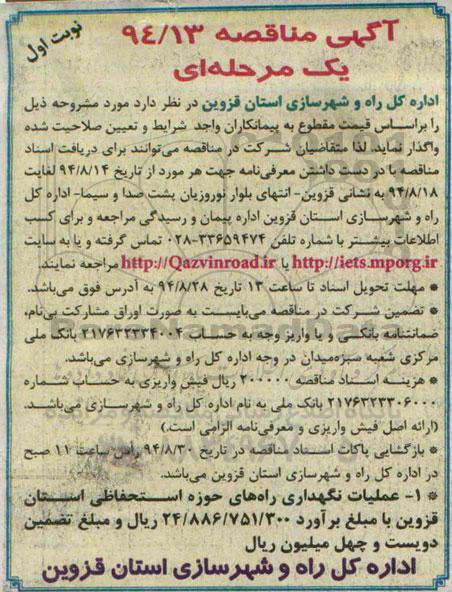 آگهی مناقصه ۹٤/۱۳
نوبت اول
یک مرحله‌ای
اداره کل راه و شهرسازی استان قزوین در نظر دارد مورد مشروحه ذیل
را براساس قیمت مقطوع به پیمانکاران واجد شرایط و تعیین صلاحیت شده
واگذار نماید. لذا متقاضیان شرکت در مناقصه می‌توانند برای دریافت اسناد
مناقصه با در دست داشتن معرفی‌نامه جهت هر مورد از تاریخ ۹۴/۸/۱۴ لغایت
۹۴/۸/۱۸ به نشانی قزوین- انتهای بلوار نوروزیان پشت صدا و سیما- اداره کل
راه و شهرسازی استان قزوین اداره پیمان و رسیدگی مراجعه و برای کسب
اطلاعات بیشتر با شماره تلفن ۳۳۶۵۹۴۷۴-۰۲۸ تماس گرفته و یا به سایت
http://iets.mporg.ir یا http://Qazvinroad.ir مراجعه نمایند.
* مهلت تحویل اسناد تا ساعت ۱۳ تاریخ ۹۴/۸/۲۸ به آدرس فوق می‌باشد.
* تضمین شرکت در مناقصه می‌بایست به صورت اوراق مشارکت بی‌نام،
ضمانتنامه بانکی و یا واریز وجه به حساب ۲۱۷۶۳۲۳۳۴۰۰۴ بانک ملی
مرکزی شعبه سبزه‌میدان در وجه اداره کل راه و شهرسازی می‌باشد.
* هزینه اسناد مناقصه ۲۰۰۰۰۰ ریال فیش واریزی به حساب شماره
۲۱۷۶۳۲۳۳۰۶۰۰۰ بانک ملی به نام اداره کل راه و شهرسازی می‌باشد.
(ارائه اصل فیش واریزی و معرفی‌نامه الزامی است.)
* بازگشایی پاکات اسناد مناقصه در تاریخ ۹۴/۸/۳۰ راس ساعت ۱۱ صبح
در اداره کل راه و شهرسازی استان قزوین می‌باشد.
* ۱- عملیات نگهداری راه‌های حوزه استحفاظی استان
قزوین با مبلغ برآورد ۲۴/۸۸۶/۷۵۱/۳۰۰ ریال و مبلغ تضمین
دویست و چهل میلیون ریال
اداره کل راه و شهرسازی استان قزوین